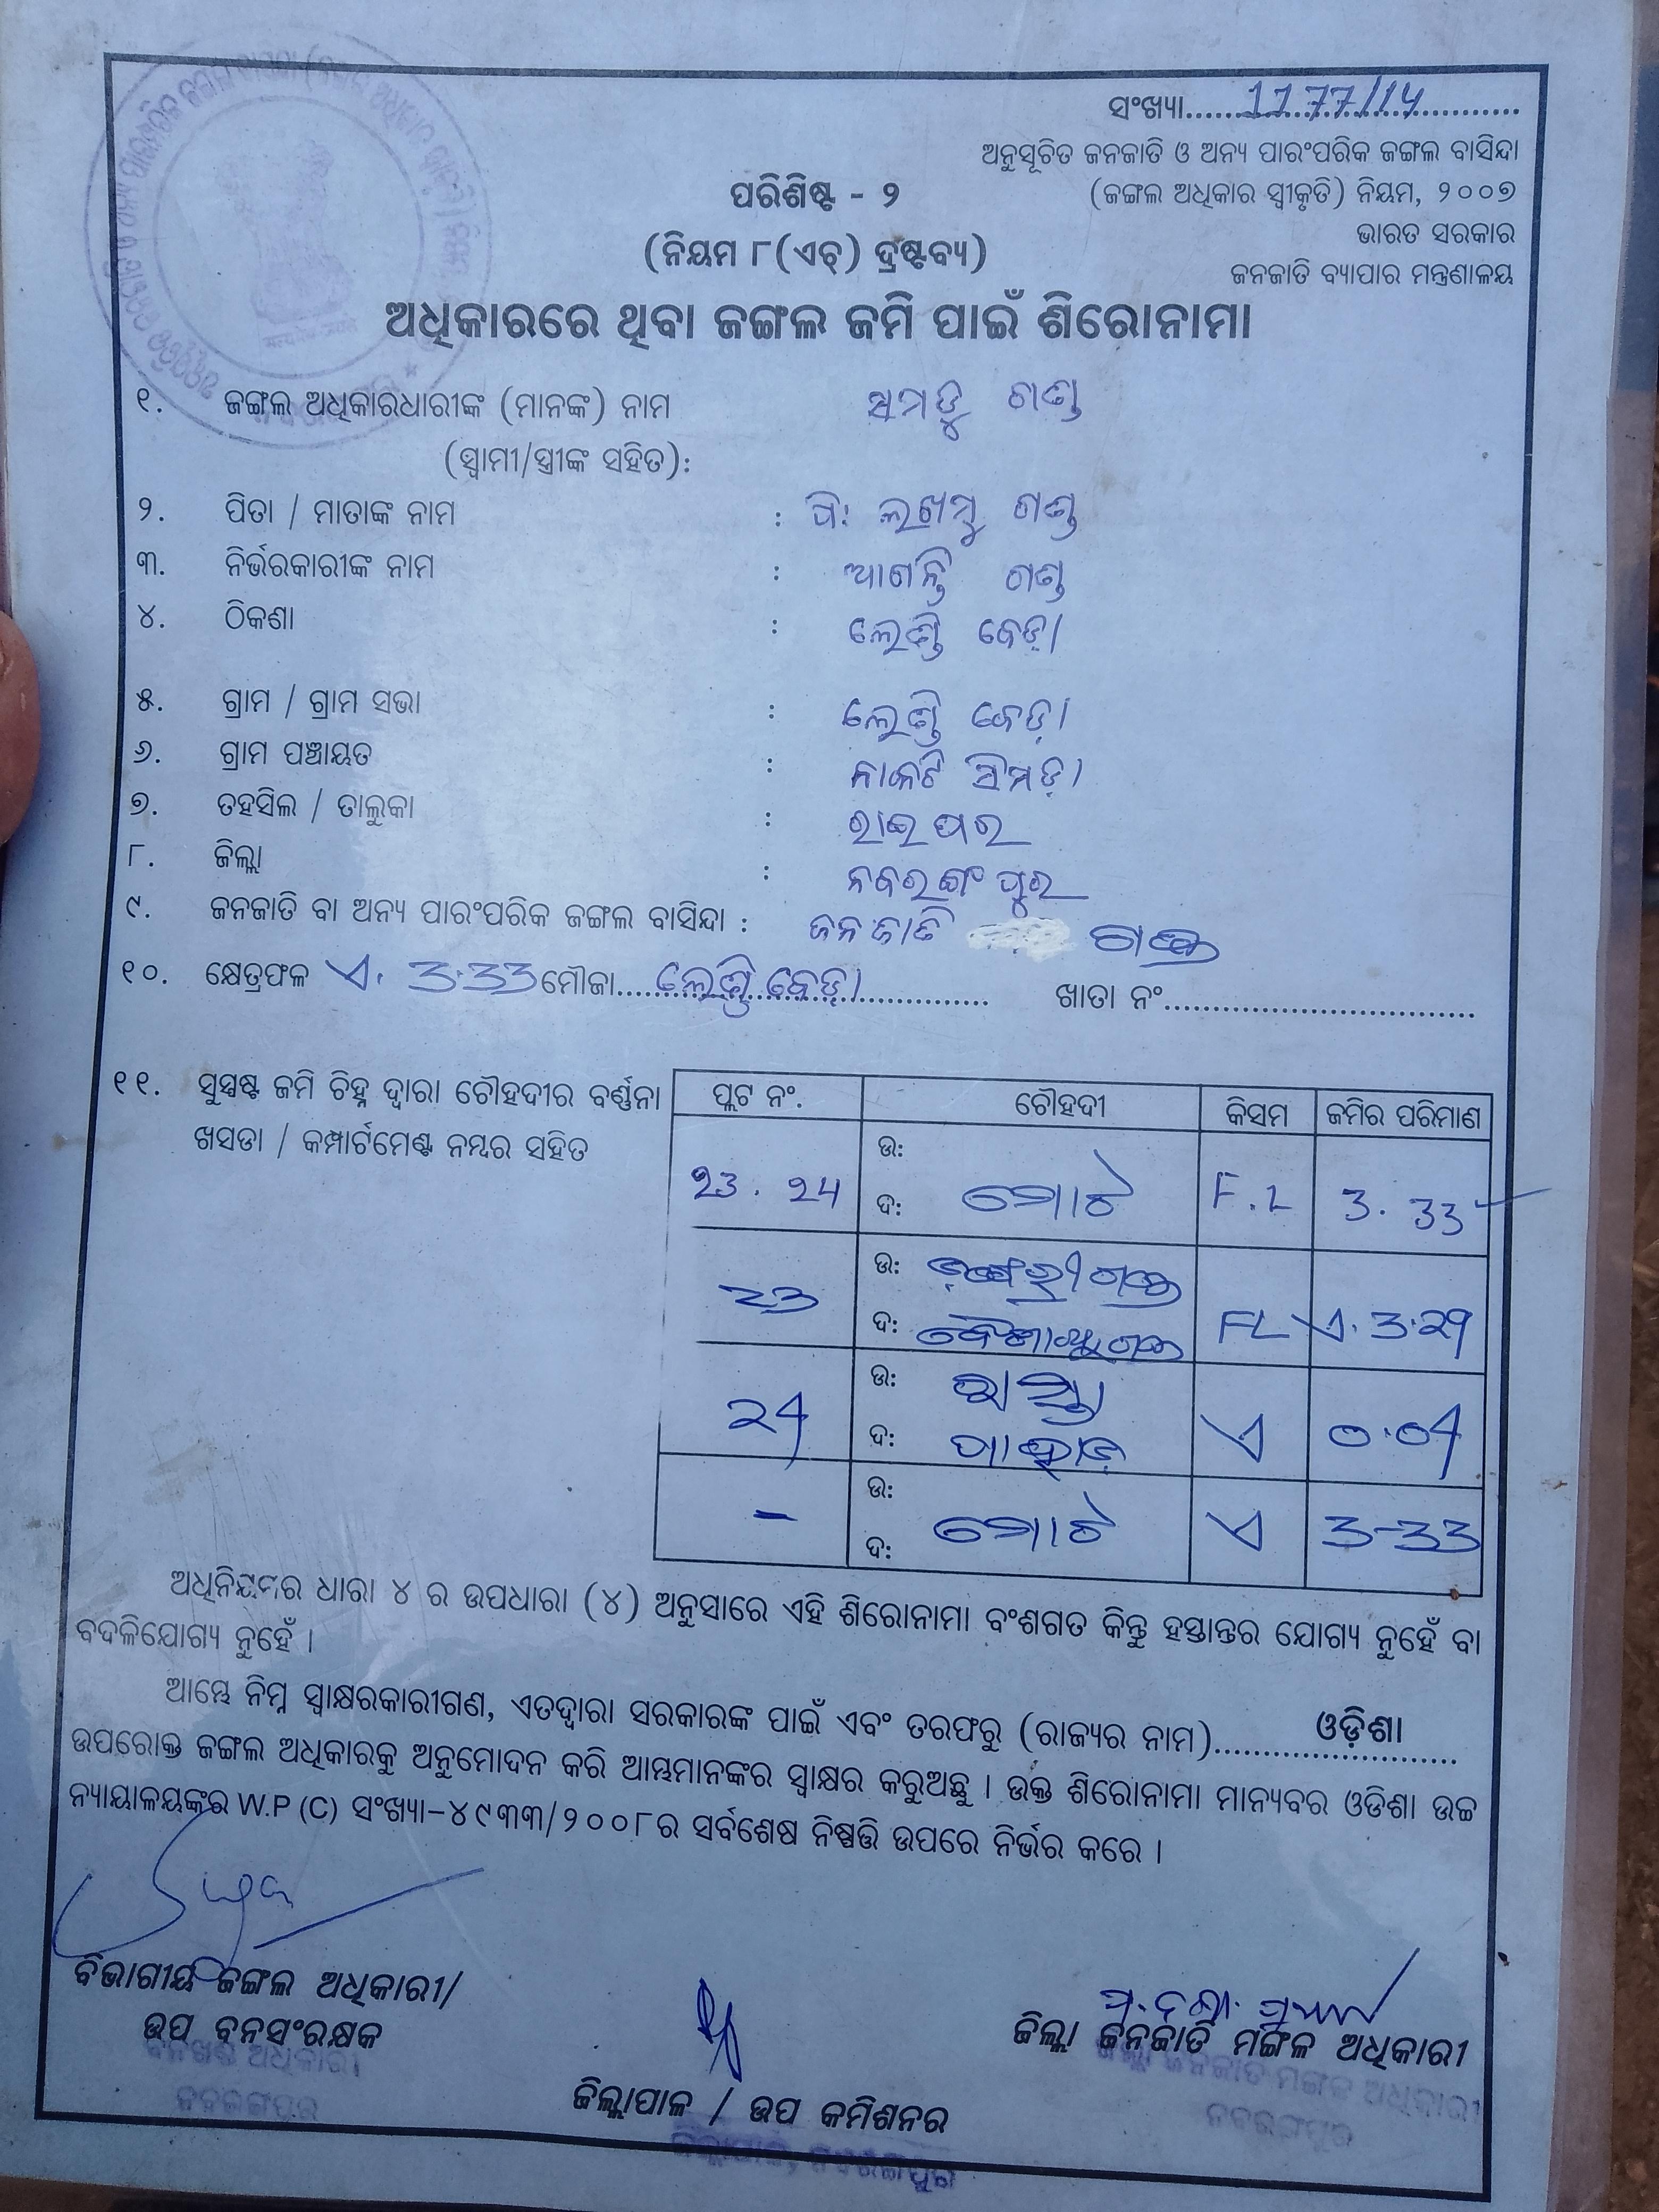 ସଂଖ୍ୟା..........1177/14..........
ଅନୁସୂଚିତ ଜନଜାତି ଓ ଅନ୍ୟ ପାରଂପରିକ ଜଙ୍ଗଲ ବାସିନ୍ଦା
(ଜଙ୍ଗଲ ଅଧିକାର ସ୍ୱୀକୃତି) ନିୟମ, ୨୦୦୭
ଭାରତ ସରକାର
ଜନଜାତି ବ୍ୟାପାର ମନ୍ତ୍ରଣାଳୟ
ପରିଶିଷ୍ଟ - ୨
(ନିୟମ ୮(ଏଚ୍) ଦ୍ରଷ୍ଟବ୍ୟ)
ଅଧିକାରରେ ଥିବା ଜଙ୍ଗଲ ଜମି ପାଇଁ ଶିରୋନାମା
୧. ଜଙ୍ଗଲ ଅଧିକାରଧାରୀଙ୍କ (ମାନଙ୍କ) ନାମ ଗଣ୍ଡ
(ସ୍ୱାମୀ/ସ୍ତ୍ରୀଙ୍କ ସହିତ):
୨. ପିତା / ମାତାଙ୍କ ନାମ : ପି: ଲଖମୁ ଗଣ୍ଡ
୩. ନିର୍ଭରକାରୀଙ୍କ ନାମ : ଗଣ୍ଡ
୪. ଠିକଣା : ଲେଣ୍ଡି ବେଡ଼ା
୫. ଗ୍ରାମ / ଗ୍ରାମ ସଭା : ଲେଣ୍ଡି ବେଡ଼ା
୬. ଗ୍ରାମ ପଞ୍ଚାୟତ :
୭. ତହସିଲ / ତାଲୁକା : ରାଇଘର
୮. ଜିଲ୍ଲା : ନବରଙ୍ଗପୁର
୯. ଜନଜାତି ବା ଅନ୍ୟ ପାରଂପରିକ ଜଙ୍ଗଲ ବାସିନ୍ଦା : ଜନଜାତି ଗଣ୍ଡ
୧୦. କ୍ଷେତ୍ରଫଳ ଏ. 3.33 ମୌଜା....ଲେଣ୍ଡି ବେଡ଼ା.......... ଖାତା ନଂ..............................
୧୧. ସୁସ୍ପଷ୍ଟ ଜମି ଚିହ୍ନ ଦ୍ୱାରା ଚୌହଦୀର ବର୍ଣ୍ଣନା
ଖସଡା / କମ୍ପାର୍ଟମେଣ୍ଟ ନମ୍ବର ସହିତ
ପ୍ଲଟ ନଂ. ଚୌହଦୀ କିସମ ଜମିର ପରିମାଣ
ଉ:
23. 24 ଦ: ମୋଟ F.L 3.33
ଉ: ଗଣ୍ଡ
23 ଦ: FL ଏ. 3.29
ଉ: ରାସ୍ତା
24 ଦ: ପାହାଡ଼ ଏ 0.04
ଉ:
- ଦ: ମୋଟ ଏ 3-33
ଅଧିନିୟମର ଧାରା ୪ ର ଉପଧାରା (୪) ଅନୁସାରେ ଏହି ଶିରୋନାମା ବଂଶଗତ କିନ୍ତୁ ହସ୍ତାନ୍ତର ଯୋଗ୍ୟ ନୁହେଁ ବା
ବଦଳିଯୋଗ୍ୟ ନୁହେଁ ।
ଆମ୍ଭେ ନିମ୍ନ ସ୍ୱାକ୍ଷରକାରୀଗଣ, ଏତଦ୍ୱାରା ସରକାରଙ୍କ ପାଇଁ ଏବଂ ତରଫରୁ (ରାଜ୍ୟର ନାମ)..........ଓଡ଼ିଶା..........
ଉପରୋକ୍ତ ଜଙ୍ଗଲ ଅଧିକାରକୁ ଅନୁମୋଦନ କରି ଆମ୍ଭମାନଙ୍କର ସ୍ୱାକ୍ଷର କରୁଅଛୁ । ଉକ୍ତ ଶିରୋନାମା ମାନ୍ୟବର ଓଡିଶା ଉଚ୍ଚ
ନ୍ୟାୟାଳୟଙ୍କର W.P (C) ସଂଖ୍ୟା-୪୯୩୩/୨୦୦୮ର ସର୍ବଶେଷ ନିଷ୍ପତ୍ତି ଉପରେ ନିର୍ଭର କରେ ।
ବିଭାଗୀୟ ଜଙ୍ଗଲ ଅଧିକାରୀ/
ଉପ ବନସଂରକ୍ଷକ
ବନଖଣ୍ଡ ଅଧିକାରୀ
ନବରଙ୍ଗପୁର
ଜିଲ୍ଲାପାଳ / ଉପ କମିଶନର
ଜିଲ୍ଲାପାଳ, ନବରଙ୍ଗପୁର
ଜିଲ୍ଲା ଜନଜାତି ମଙ୍ଗଳ ଅଧିକାରୀ
ଜିଲ୍ଲା ଜନଜାତି ମଙ୍ଗଳ ଅଧିକାରୀ
ନବରଙ୍ଗପୁର